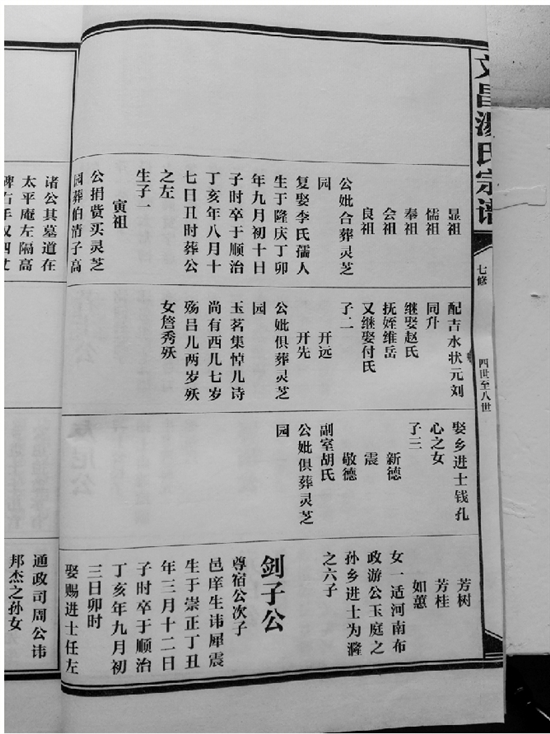 文昌汤氏宗谱
七修
四世至八世
显祖
儒祖
奉祖
会祖
良祖
公妣合葬灵芝
园
复娶李氏孺人
生于隆庆丁卯
年九月初十日
子时卒于顺治
丁亥年八月十
七日丑时葬公
之左
生子一
寅祖
公捐赀买灵芝
园葬伯清子高
诸公其墓道在
太平庵左隔高
配吉水状元刘
同升
继娶赵氏
抚姪维岳
又继娶付氏
子二
开远
开先
公妣俱葬灵芝
园
玉茗集悼儿诗
尚有西儿七岁
殇吕儿两岁殀
女詹秀殀
娶乡进士钱孔
心之女
子三
新德
震
敬德
副室胡氏
公妣俱葬灵芝
园
芳树
芳桂
如蕙
女一适河南布
政游公玉庭之
孙乡进士为瀠
之六子
剑子公
尊宿公次子
邑庠生讳犀震
生于崇正丁丑
年三月十二日
子时卒于顺治
丁亥年九月初
三日卯时
娶赐进士任左
通政司周公讳
邦杰之孙女